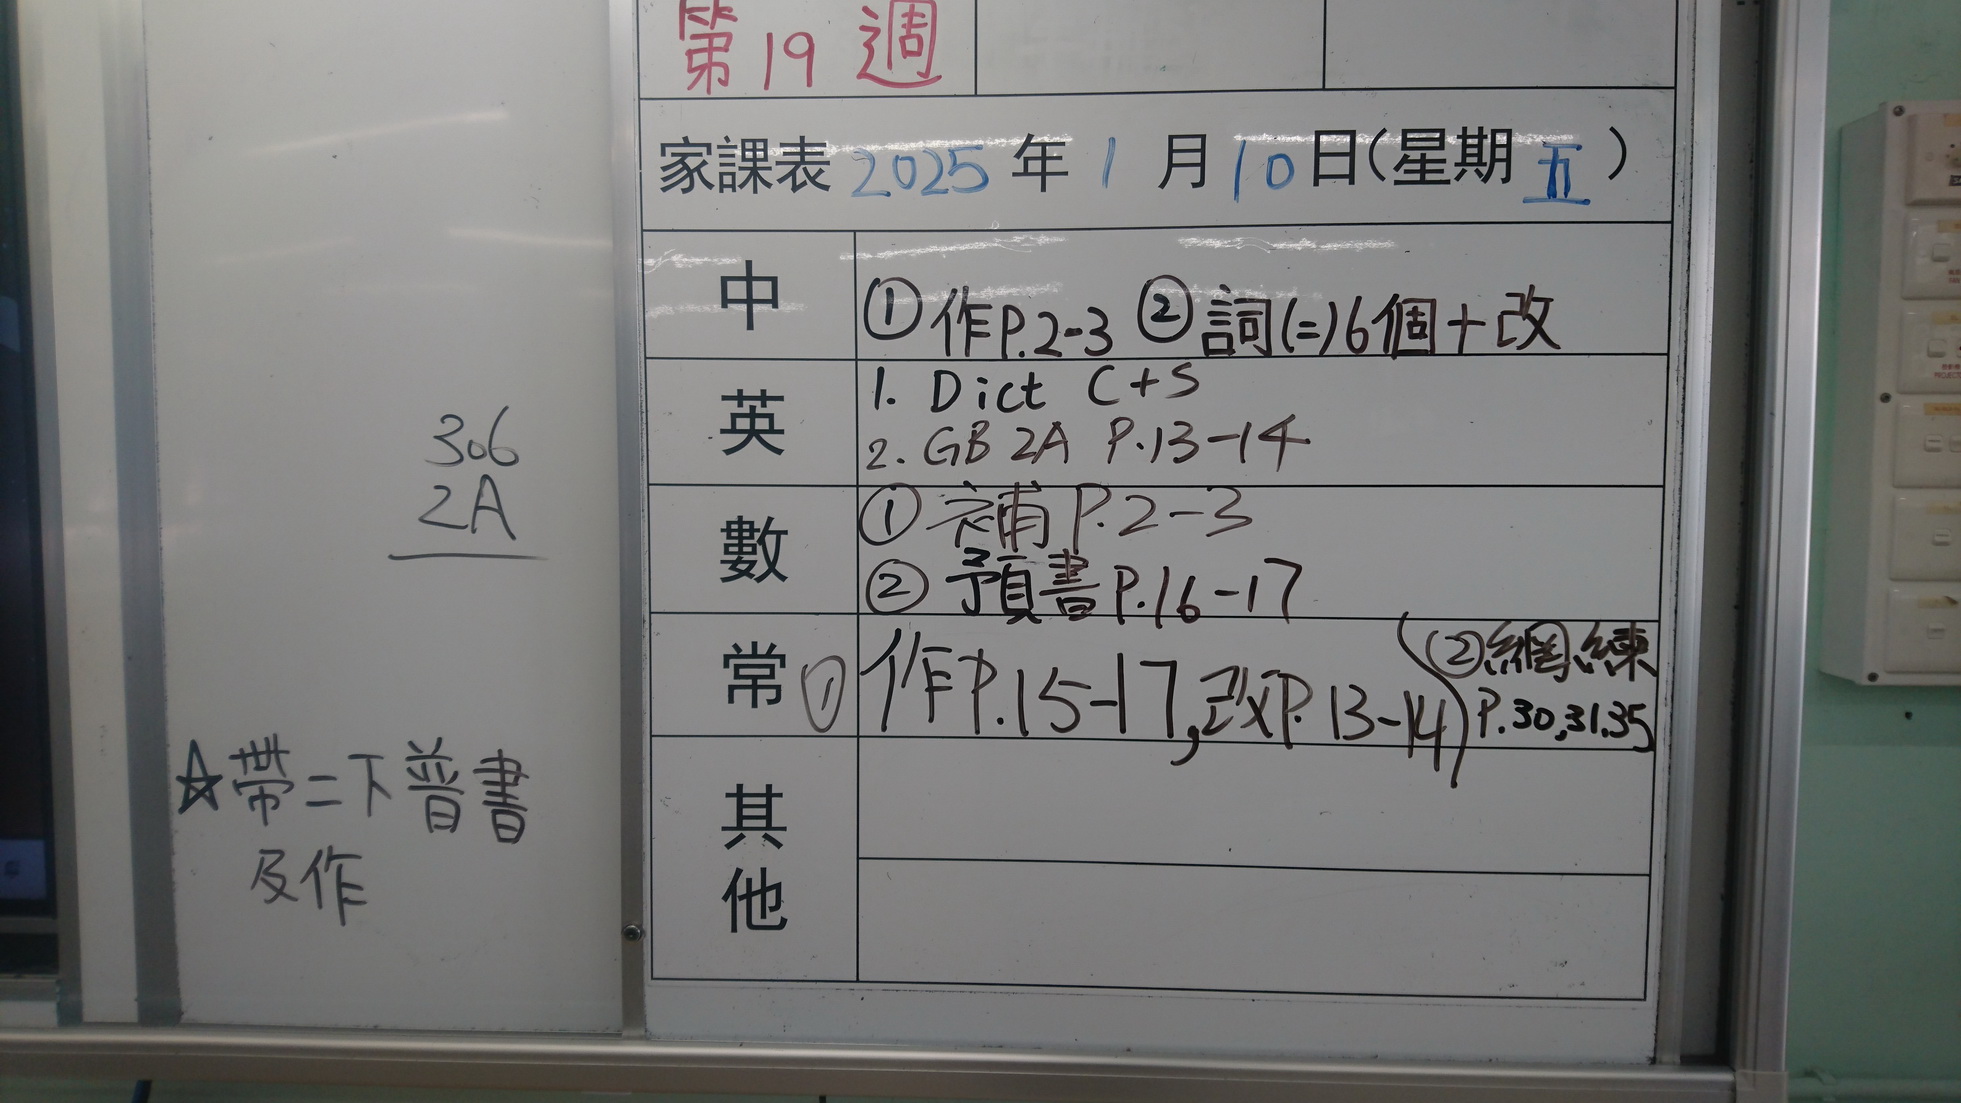 第19週
家課表 2025年1月10日(星期五)
中
①作P.2-3 ②詞(二)6個+改
英
1. Dict C+S
2. GB 2A P.13-14
數
①補P.2-3
②預書P.16-17
常
①作P.15-17,改P.13-14
②網練
P.30,31.35
其他
306
2A
☆帶二下普書
及作